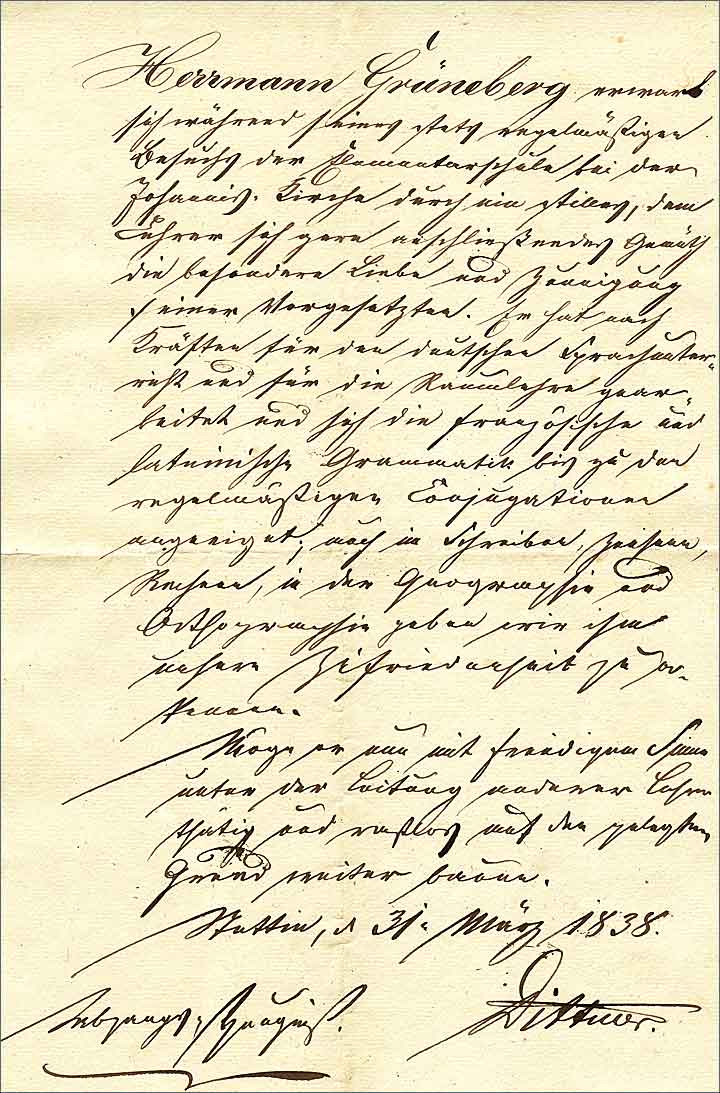 Herrmann Grüneberg erwarb
sich während seines stets regelmäßigen
Besuchs der Elementarschule bei der
Johannis-Kirche durch ein stilles, dem
Lehrer sich gern anschließendes Gemüth
die besondere Liebe und Zuneigung
seiner Vorgesetzten. Er hat nach
Kräften für den deutschen Sprachunter-
richt und für die Raumlehre gear-
beitet und sich die französische und
lateinische Grammatik bis zu den
regelmäßigen Conjugationen
angeeignet; auch im Schreiben, Zeichnen,
Rechnen, in der Geographie und
Orthographie geben wir ihm
unsere Zufriedenheit zu er-
kennen.
Möge er nun mit freudigem Sinne
unter der Leitung anderer Lehrer
thätig und rastlos auf den gelegten
Grund weiter bauen.
Stettin, d 31. März 1838.
Abgangs-Zeugniß.
Dittmer.